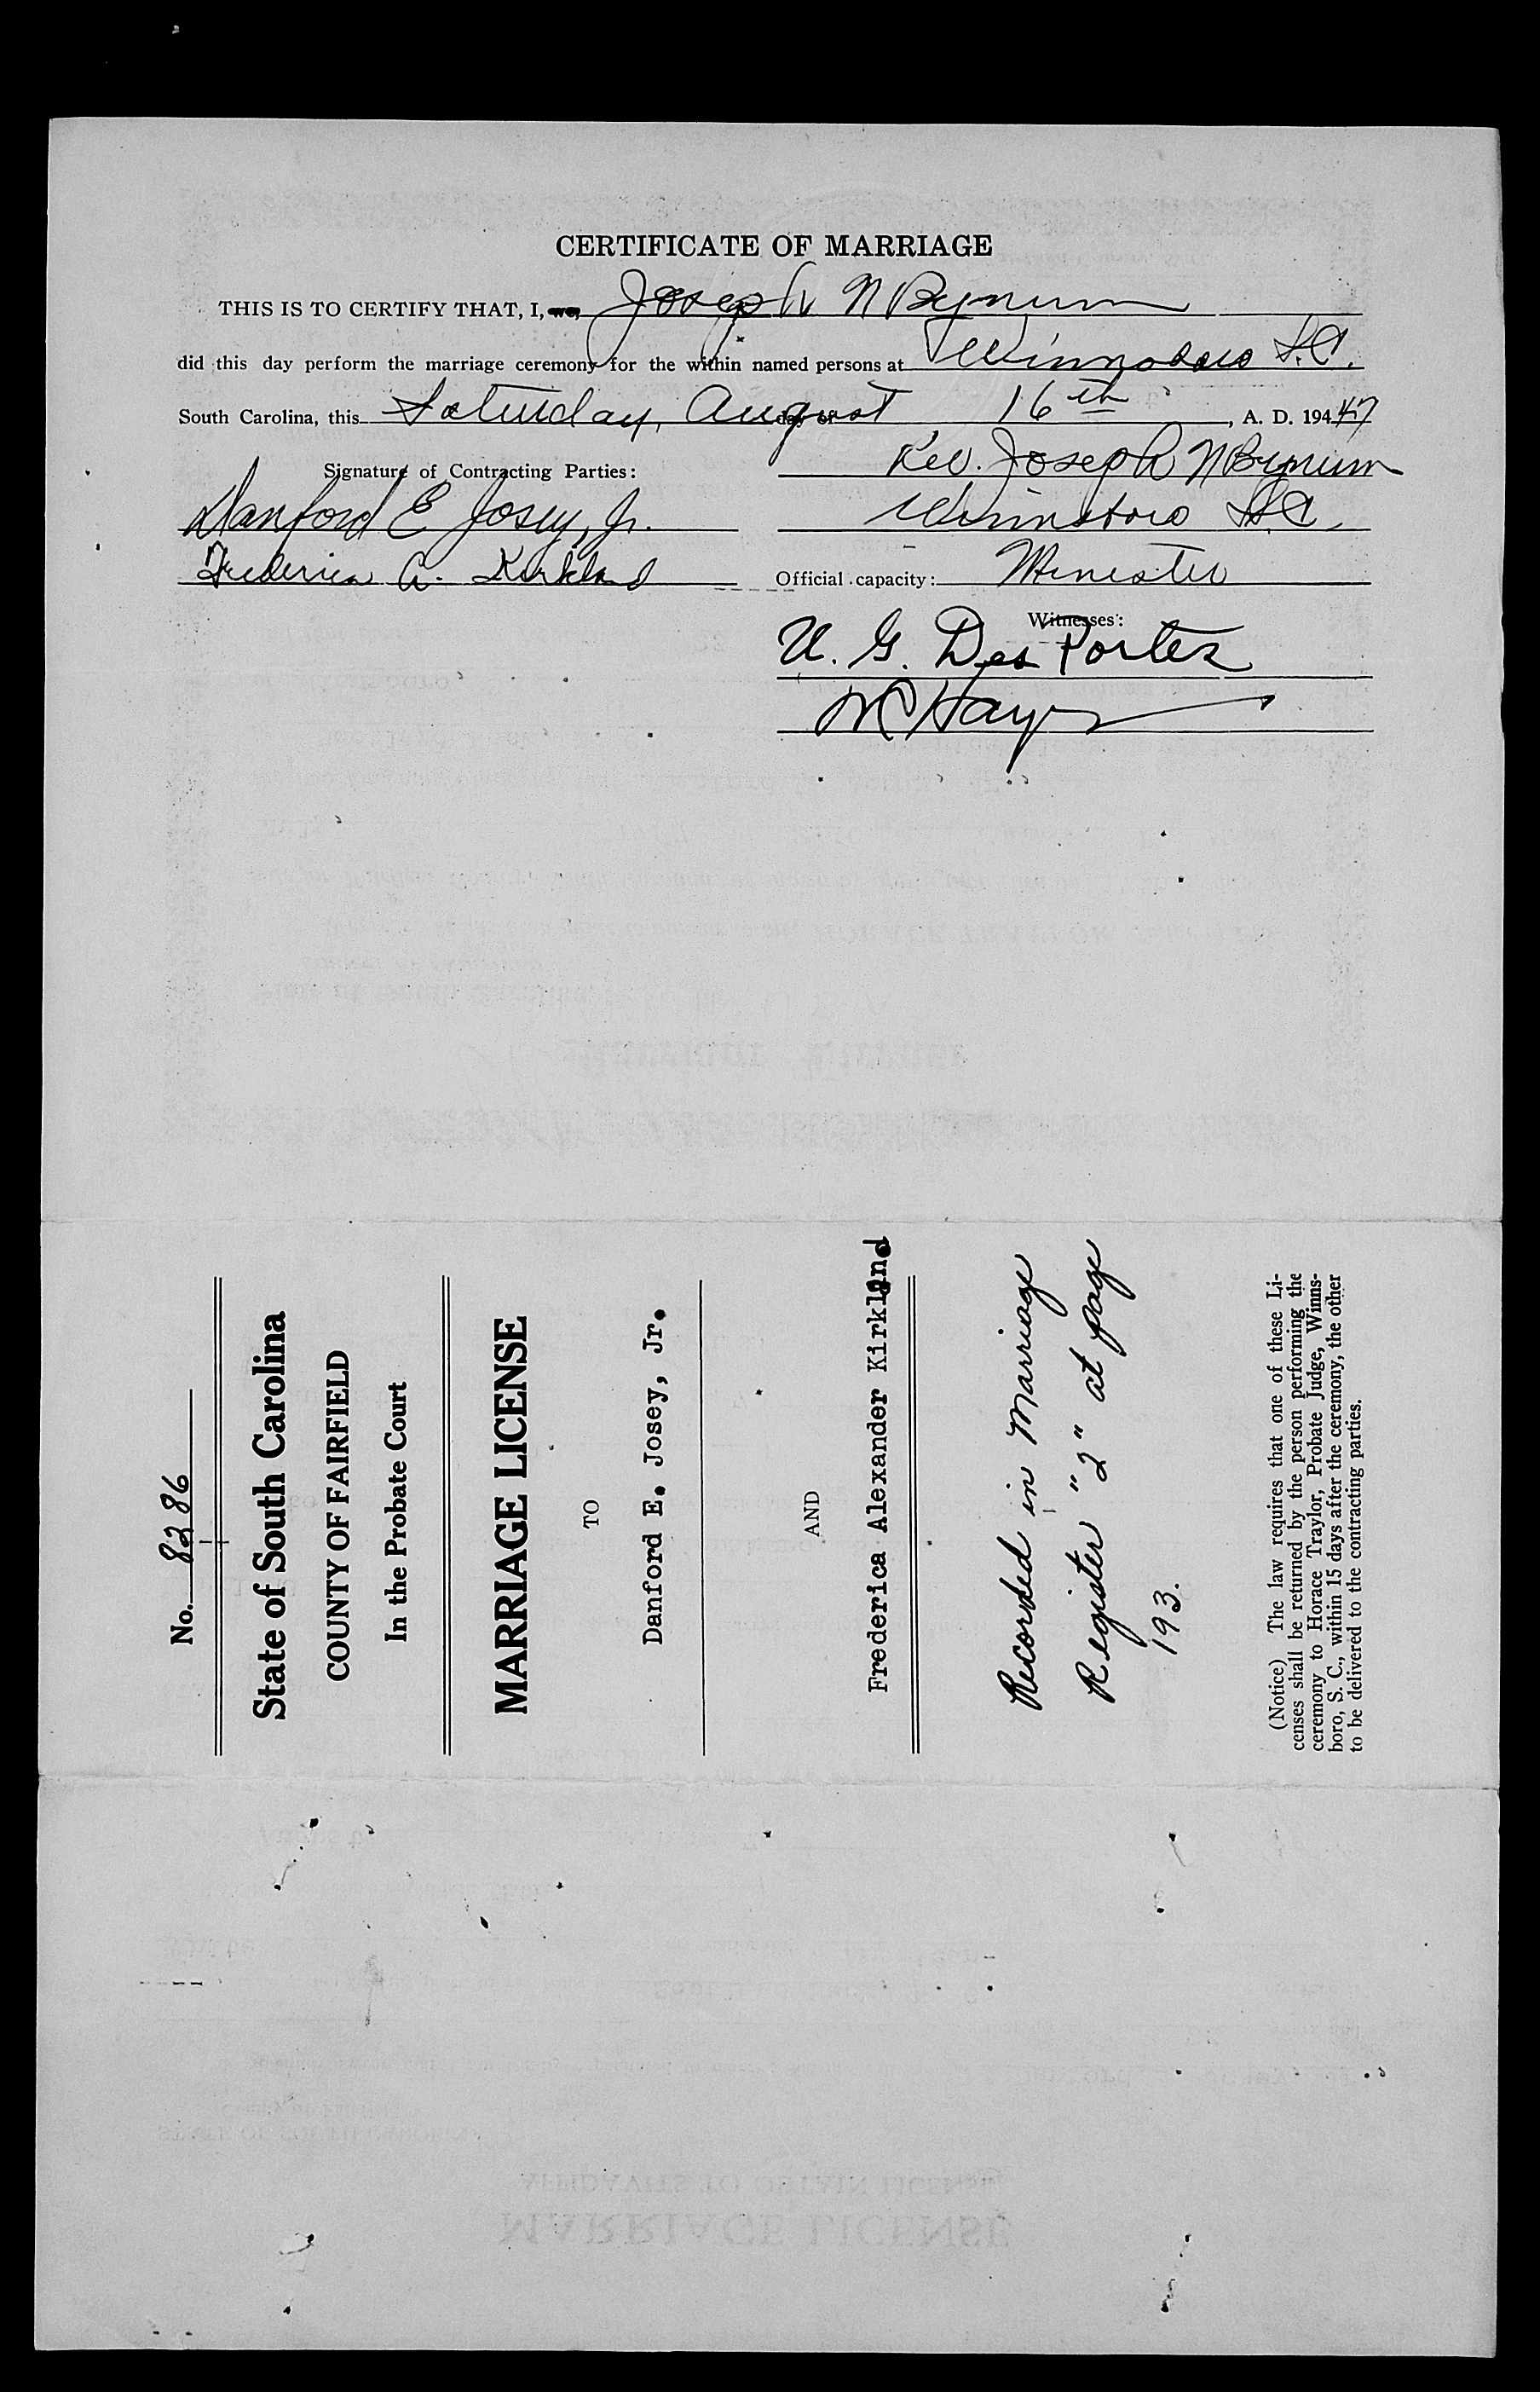 CERTIFICATE OF MARRIAGE
THIS IS TO CERTIFY THAT, I, we, Joseph N Bynum
did this day perform the marriage ceremony for the within named persons at Winnsboro S.C.
South Carolina, this Saturday, August day of 16th, A. D. 194 47
Rev. Joseph N Bynum
Signature of Contracting Parties:
Winnsboro S.C.
Danford E Josey, Jr.
Frederica A. Kirkland
Official capacity: Minister
Witnesses:
U. G. Des Portes
Hayes
No. 8286
State of South Carolina
COUNTY OF FAIRFIELD
In the Probate Court
MARRIAGE LICENSE
TO
Danford E. Josey, Jr.
AND
Frederica Alexander Kirkland
Recorded in Marriage
Register "2" at page
193.
(Notice) The law requires that one of these Li-
censes shall be returned by the person performing the
ceremony to Horace Traylor, Probate Judge, Winns-
boro, S. C., within 15 days after the ceremony, the other
to be delivered to the contracting parties.